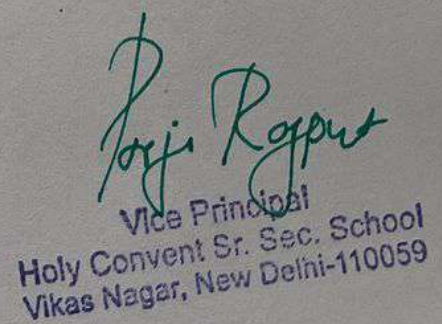 Rajput
Vice Principal
Holy Convent Sr. Sec. School
Vikas Nagar, New Delhi-110059